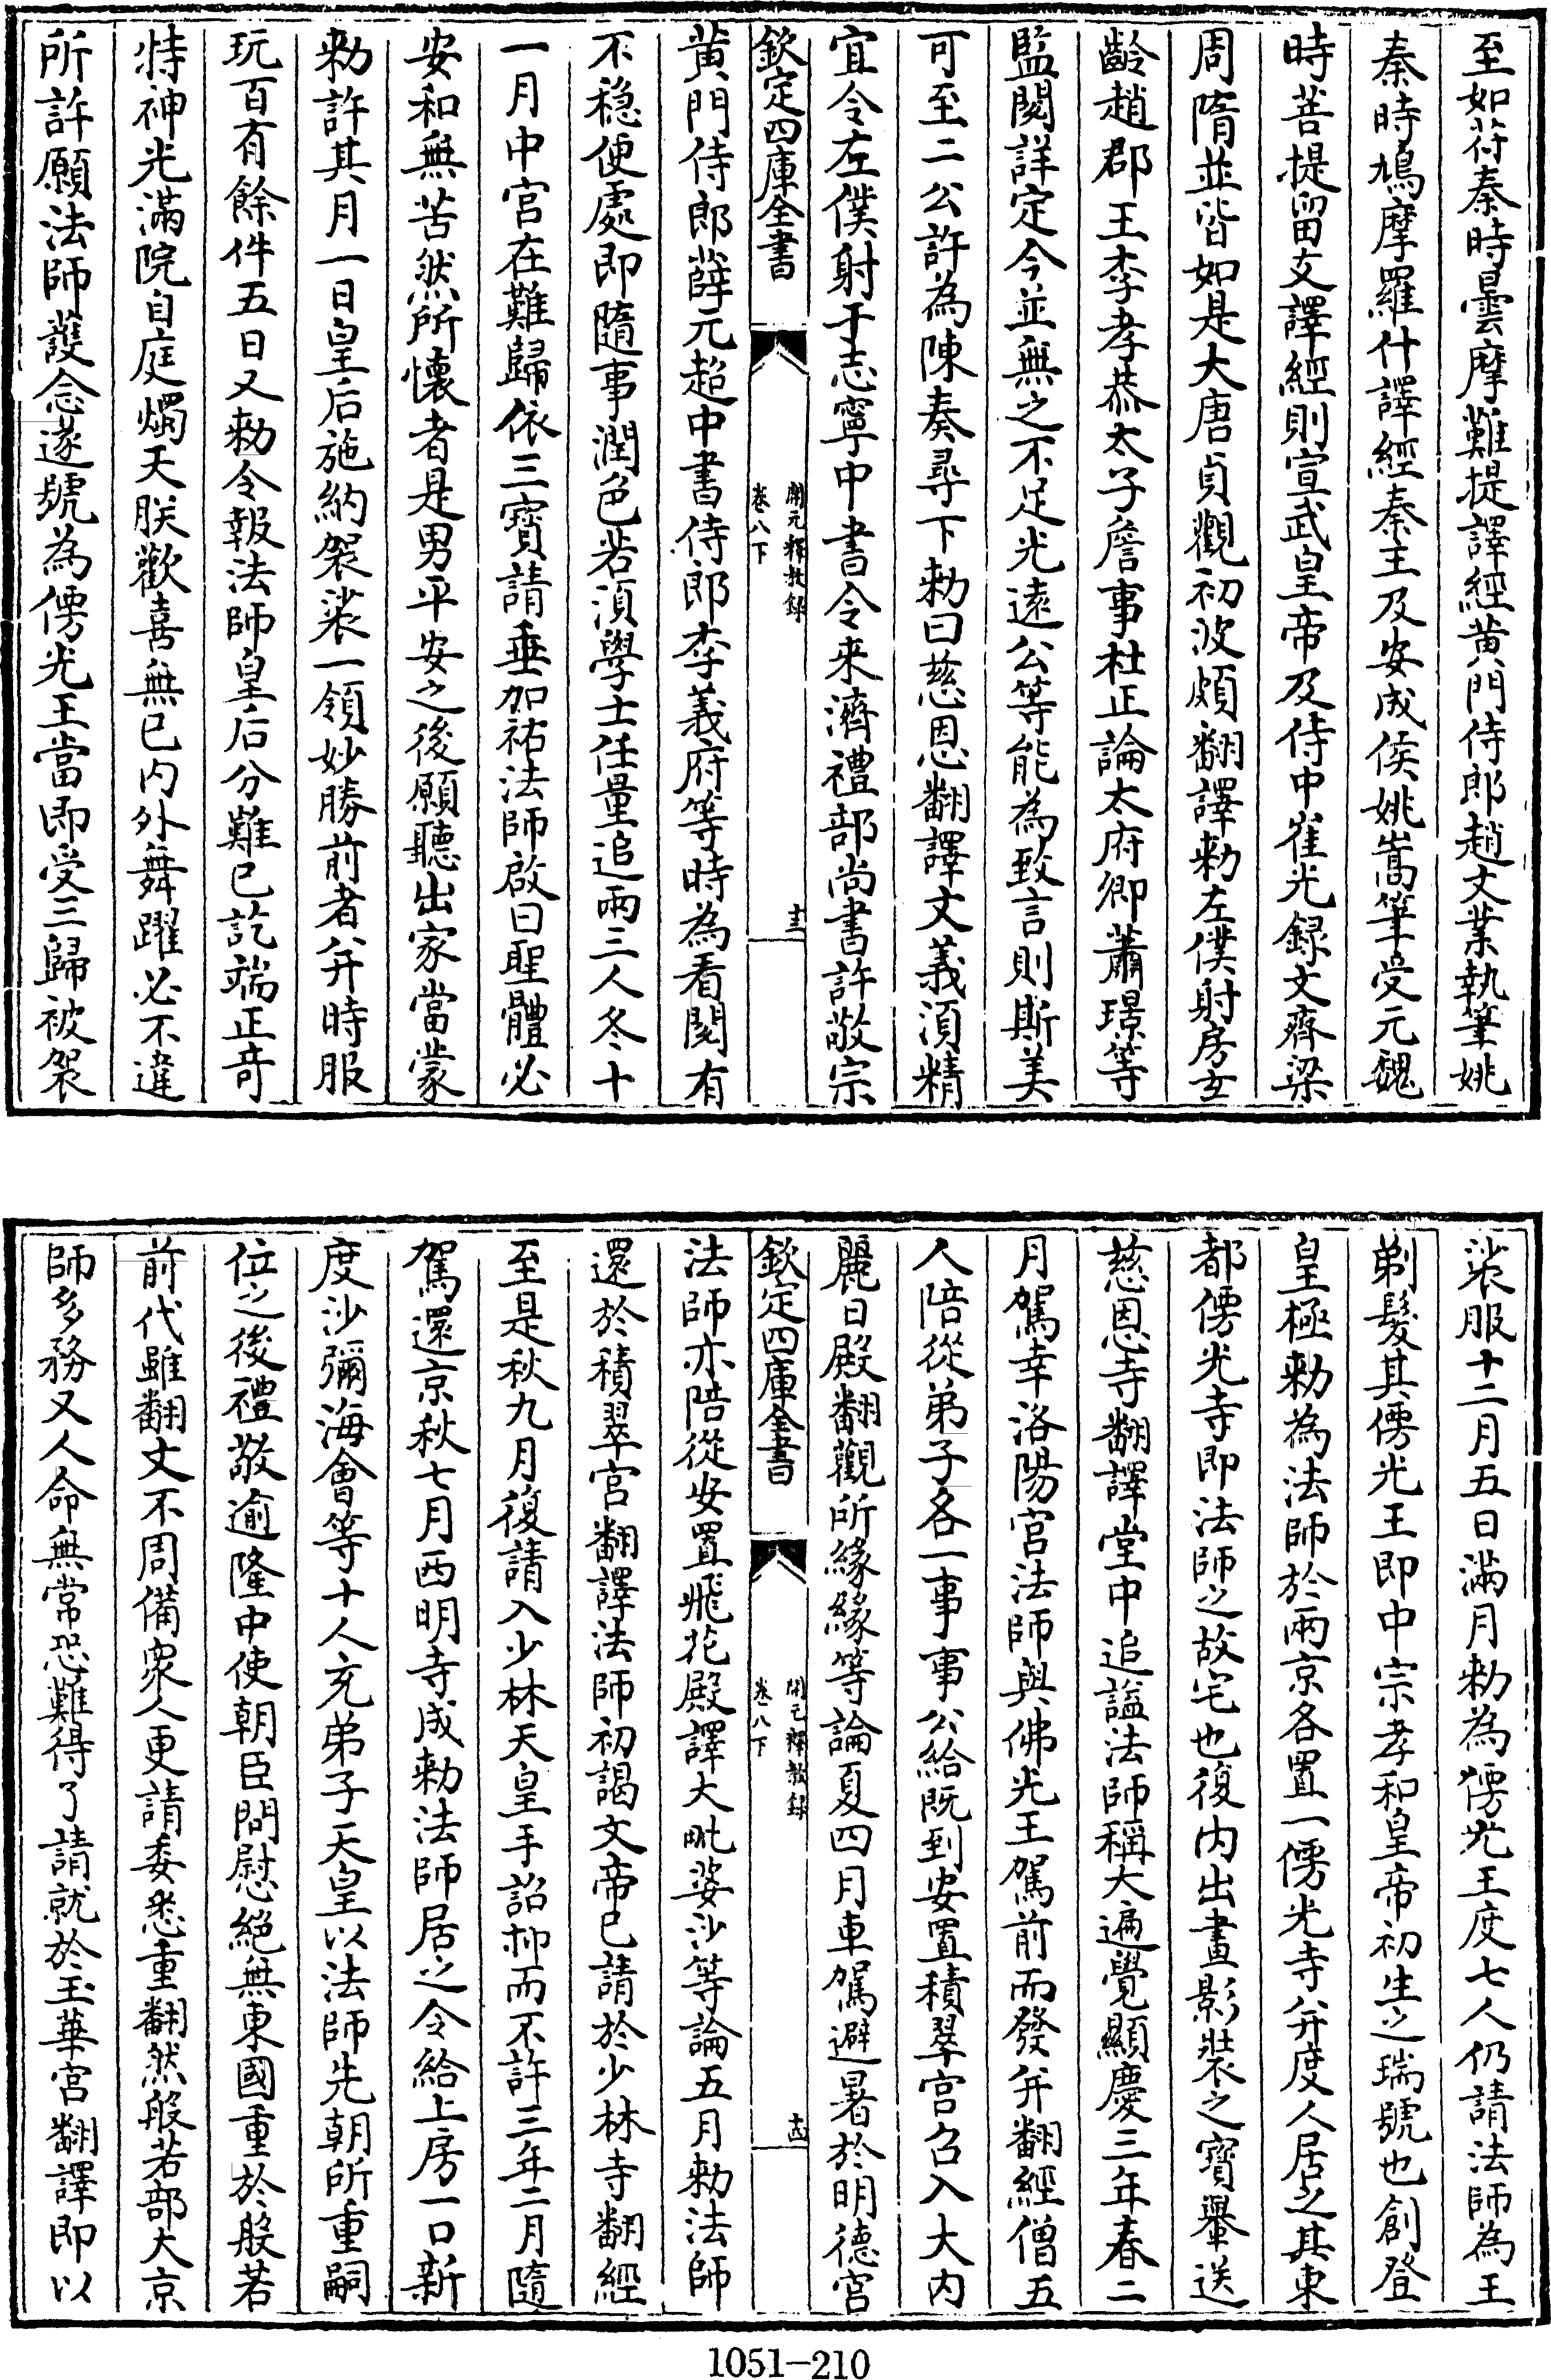 至如苻秦時曇摩難提譯經黄門侍郎趙文業執筆姚
秦時鳩摩羅什譯經秦王及安成侯姚嵩筆受元魏
時菩提留支譯經則宣武皇帝及侍中崔光録文齊梁
周隋並皆如是大唐貞觀初波頗翻譯勅左僕射房玄
齡趙郡王李孝恭太子詹事杜正論太府卿蕭璟等
監閱詳定今並無之不足光遠公等能為致言則斯美
可至二公許為陳奏尋下勅曰慈恩翻譯文義湏精
宜令左僕射于志寧中書令來濟禮部尚書許敬宗
欽定四庫全書
開元釋教録
卷八下
十三
黄門侍郎薛元超中書侍郎李義府等時為看閱有
不稳便處即隨事潤色若湏學士任量追兩三人冬十
一月中宮在難歸依三寳請垂加祐法師啟曰聖體必
安和無苦然所懷者是男平安之後願聽出家當蒙
勅許其月一日皇后施納袈裟一領妙勝前者并時服
玩百有餘件五日又勅令報法師皇后分難已訖端正奇
特神光滿院自庭燭天朕歡喜無已内外舞躍必不違
所許願法師護念遂號為佛光王當即受三歸被袈
裟服十二月五日滿月勅為佛光王度七人仍請法師為王
剃髮其佛光王即中宗孝和皇帝初生之瑞號也創登
皇極勅為法師於兩京各置一佛光寺并度人居之其東
都佛光寺即法師之故宅也復内出畫影装之寳轝送
慈恩寺翻譯堂中追謚法師稱大遍覺顯慶三年春二
月駕幸洛陽宮法師與佛光王駕前而發并翻經僧五
人陪從弟子各一事事公給既到安置積翠宮召入大内
麗日殿翻觀所緣緣等論夏四月車駕避暑於明德宮
欽定四庫全書
開元釋教録
卷八下
十四
法師亦陪從安置飛花殿譯大毗婆沙等論五月勅法師
還於積翠宮翻譯法師初謁文帝已請於少林寺翻經
至是秋九月復請入少林天皇手詔抑而不許三年二月隨
駕還京秋七月西明寺成勅法師居之令給上房一口新
度沙彌海會等十人充弟子天皇以法師先朝所重嗣
位之後禮敬逾隆中使朝臣問慰絕無東國重於般若
前代雖翻文不周備衆人更請委悉重翻然般若部大京
師多務又人命無常恐難得了請就於玉華宮翻譯即以
1051-210